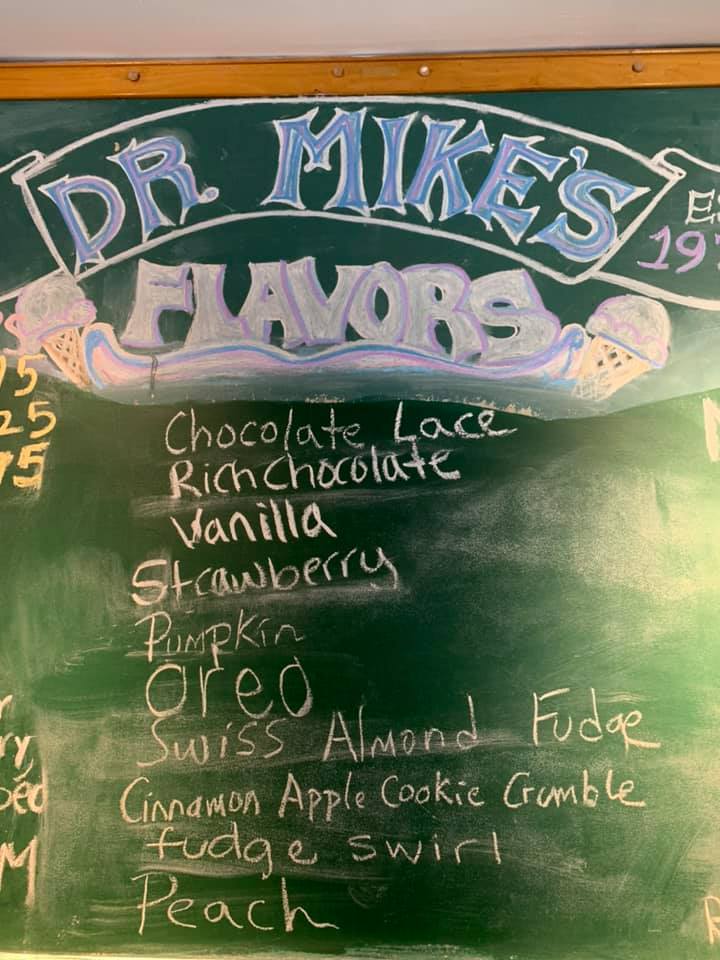 DR. MIKE'S
FLAVORS
Chocolate Lace
Rich Chocolate
Vanilla
Strawberry
Pumpkin
Oreo
Swiss Almond Fudge
Cinnamon Apple Cookie Crumble
fudge swirl
Peach
25